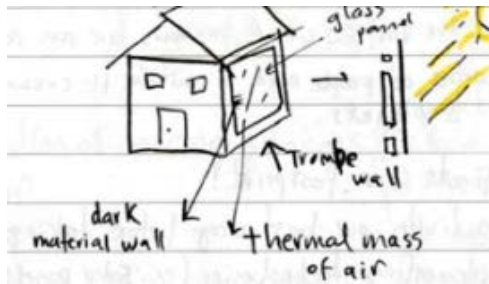 glass
pannel
Trombe
wall
dark
material wall
thermal mass
of air